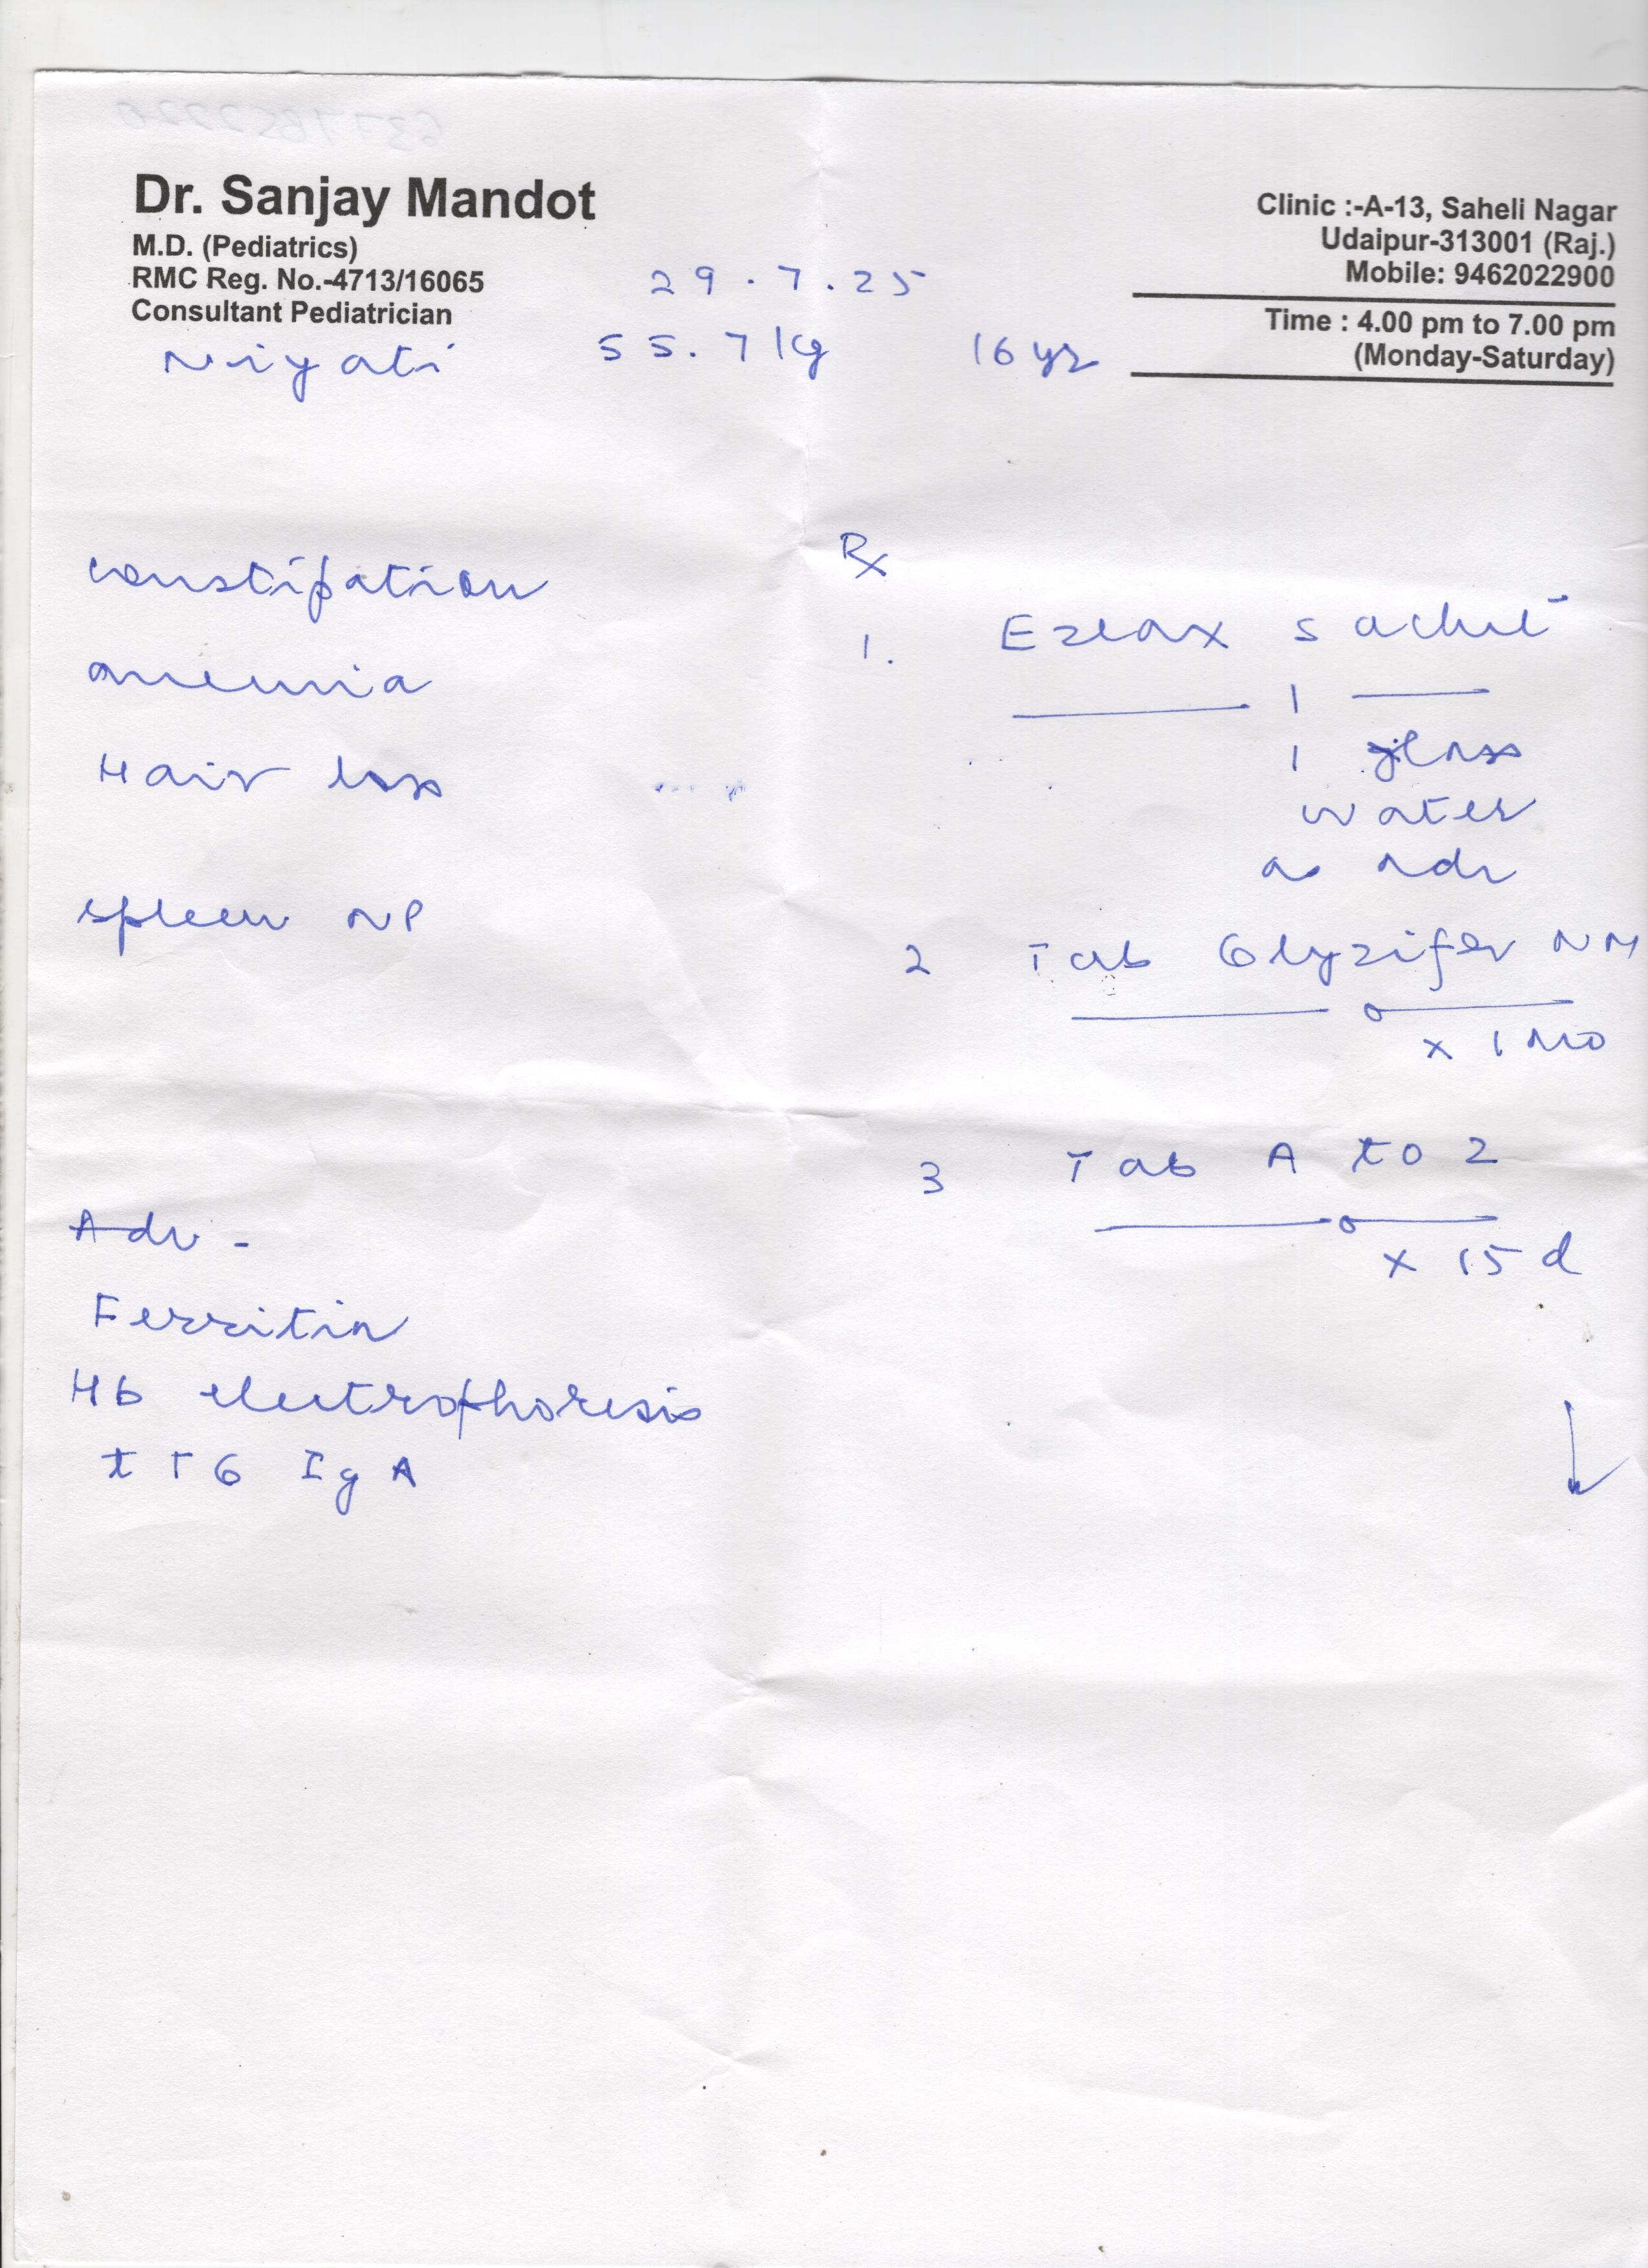 Dr. Sanjay Mandot
M.D. (Pediatrics)
RMC Reg. No.-4713/16065
Consultant Pediatrician
Clinic :-A-13, Saheli Nagar
Udaipur-313001 (Raj.)
Mobile: 9462022900
Time : 4.00 pm to 7.00 pm
(Monday-Saturday)
29.7.25
Niyati 55.7 kg 16 yr
constipation
anemia
Hair loss
spleen NP
Adv -
Ferritin
Hb electrophoresis
tTG IgA
Rx
1. Ezlax sachet
1
1 glass
water
as adv
2 Tab Glyzifer NM
x 1 mo
3 Tab A to Z
x 15 d